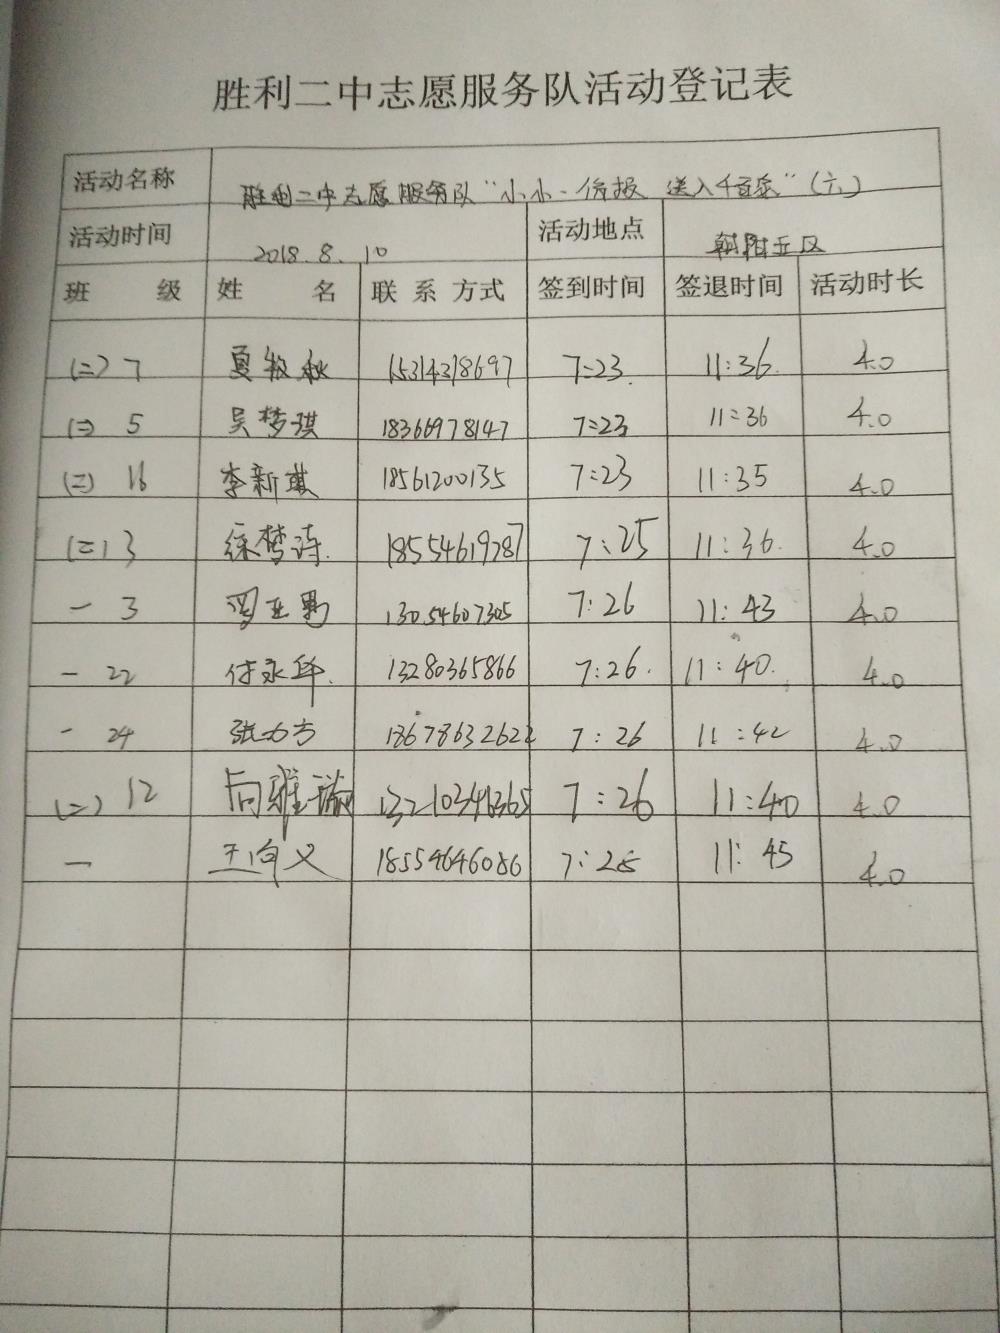 胜利二中志愿服务队活动登记表
活动名称 胜利二中志愿服务队“小小一份报 送入千百家”(六)
活动时间 2018.8.10 活动地点
班 级 姓 名 联 系 方式 签到时间 签退时间 活动时长
(二) 7 夏牧秋 15314318697 7:23 11:36 4.0
(二) 5 吴梦琪 18366978147 7:23 11:36 4.0
(二) 16 李新琪 18561200135 7:23 11:35 4.0
(二) 3 徐梦诗 18554619787 7:25 11:36 4.0
一 3 罗亚男 13054607305 7:26 11:43 4.0
一 22 付永华 13280365866 7:26 11:40 4.0
一 24 张力方 18678632622 7:26 11:42 4.0
(二) 12 尚雅瑜 13210341365 7:26 11:40 4.0
一 王向义 18554646086 7:28 11:45 4.0